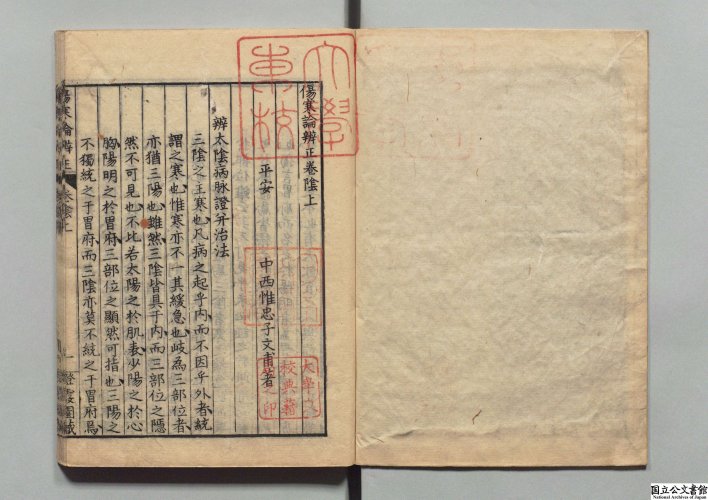 傷寒論辨正卷陰上
平安 中西惟忠子文甫著
辨太陰病脉證并治法
三陰之主寒也凡病之起乎內而不因乎外者統
謂之寒也惟寒亦不一其緩急也岐為三部位者
亦猶三陽也雖然三陰皆具于內而三部位之隱
然不可見也不比若太陽之於肌表少陽之於心
胸陽明之於胃府三部位之顯然可指也三陽之
不獨統之于胃府而三陰亦莫不統之于胃府焉
傷寒論辨正 卷陰上 一
文學
国立公文書館
National Archives of Japan